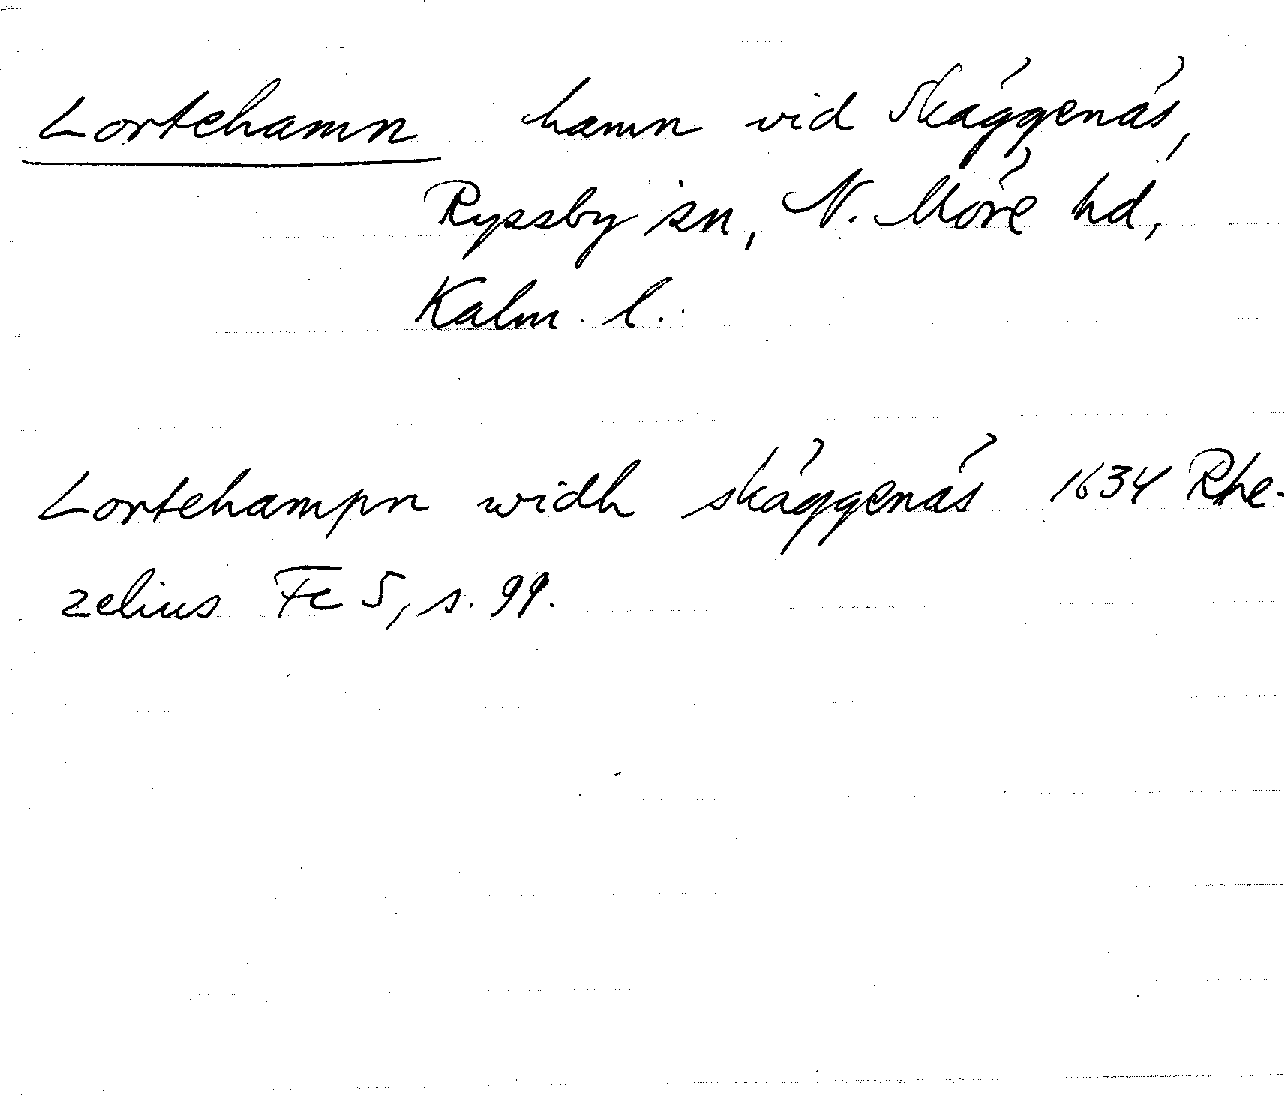 Lortehamn hamn vid Skäggenäs,
Ryssby sn, N. Möre hd,
Kalm. l.
Lortehampn widh skäggenäs 1634 Rhe-
zelius Fc 5, s. 99.